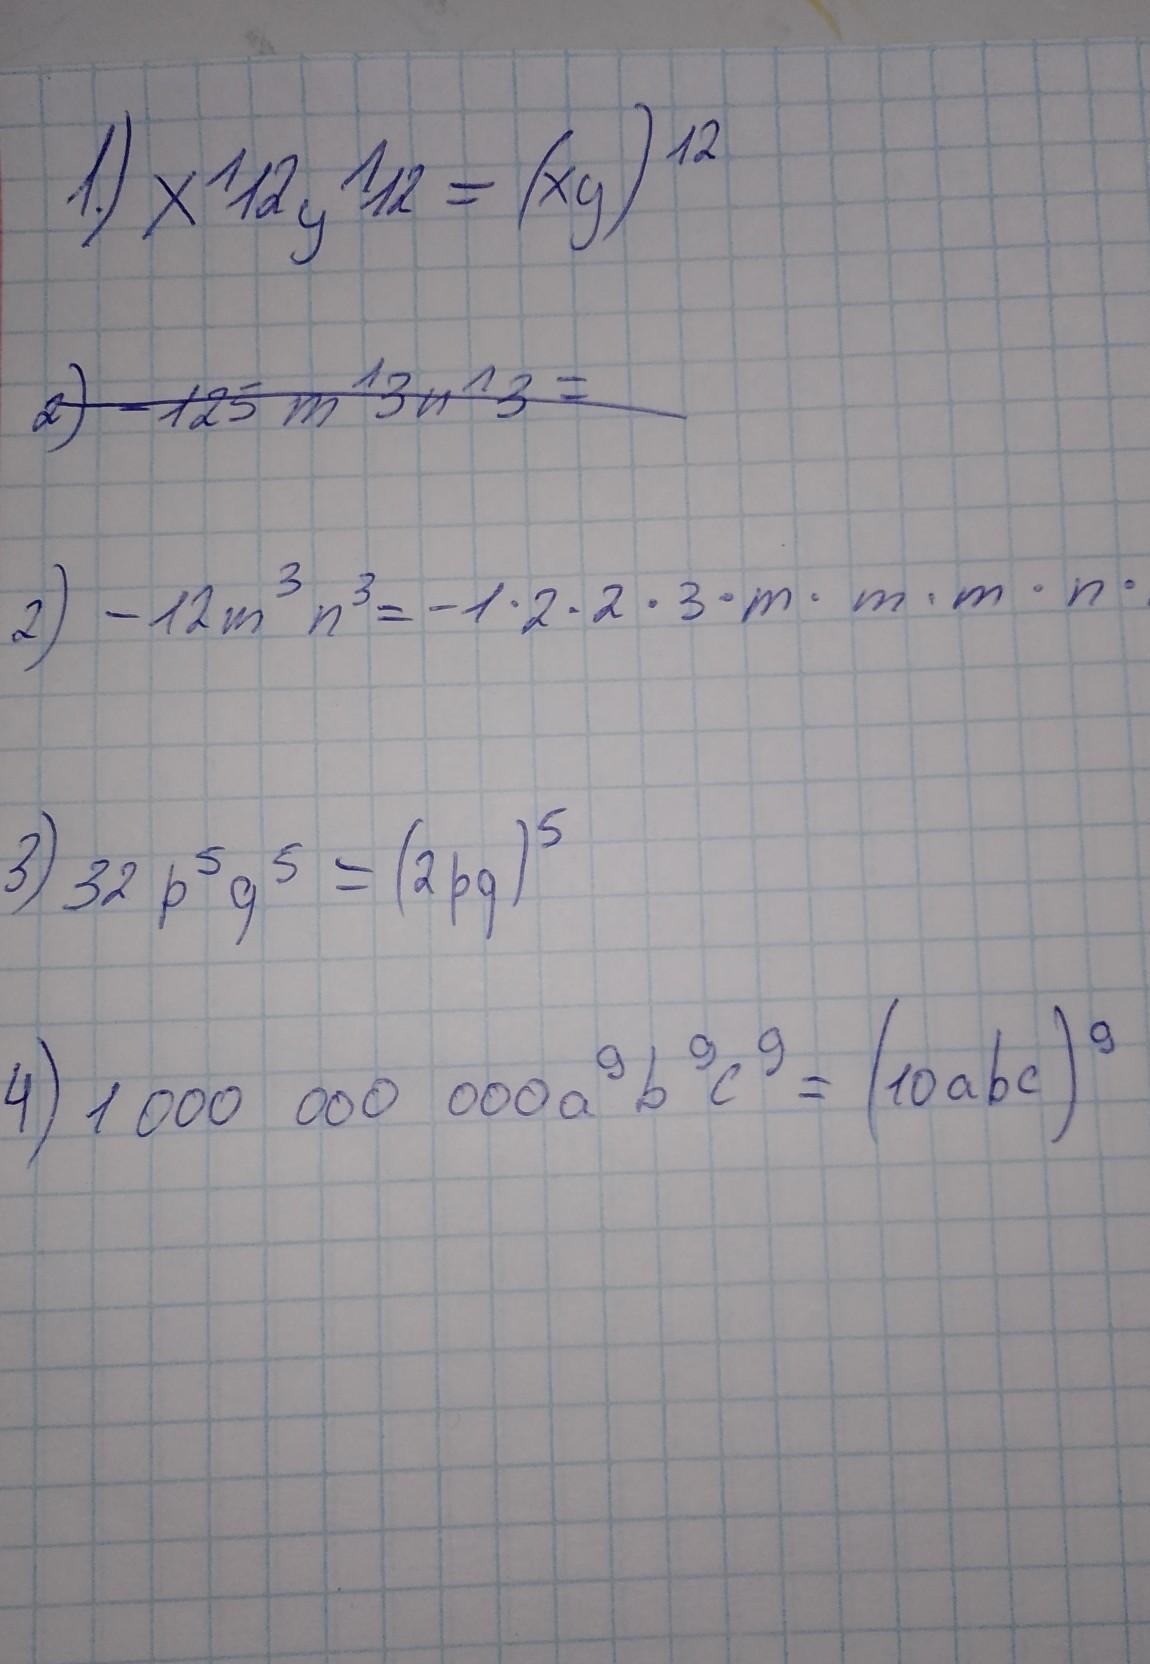 1.) x^12y^12 = (xy)^12
2) -125 m^3n^3 =
2) -12m³ n³ = -1·2·2·3·m· m·m·n·
3) 32 p⁵q⁵ = (2pq)⁵
4) 1 000 000 000a⁹b⁹c⁹ = (10abc)⁹